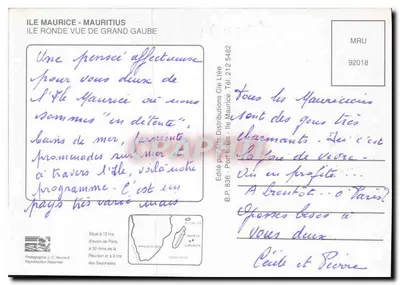 ILE MAURICE - MAURITIUS
ILE RONDE VUE DE GRAND GAUBE
Une pensée affectueuse
pour vous deux de
l'Ile Maurice où nous
sommes "en détente",
bains de mer, farniente,
promenades sur mer et
à travers l'Ile, voilà notre
programme - C'est un
pays très varié mais
Situé à 12 hrs
d'avion de Paris
à 30 mins de la
Réunion et à 3 hrs
des Seychelles
Reproduction Réservée
Edité par Distributions Cie Ltée
B.P. 836 - Port-Louis - Ile Maurice Tél. 212 5482
MRU
92018
tous les Mauriciens
sont des gens très
charmants - Ici c'est
la joie de vivre -
On en profite ---
A bientôt ... à Paris?
Grosses bises à
vous deux
Cécile et Pierre